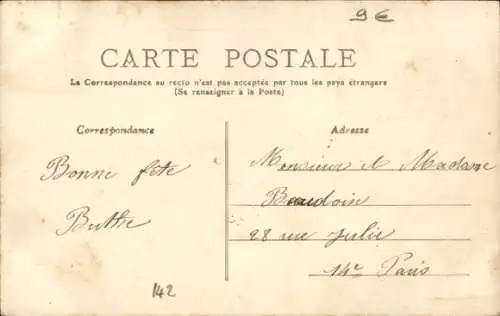 9€
CARTE POSTALE
La Correspondance au recto n'est pas acceptée par tous les pays étrangers
(Se renseigner à la Poste)
Correspondance
Adresse
Bonne fête
Monsieur et Madame
Beaudoin
28 rue Julie
14e Paris
142